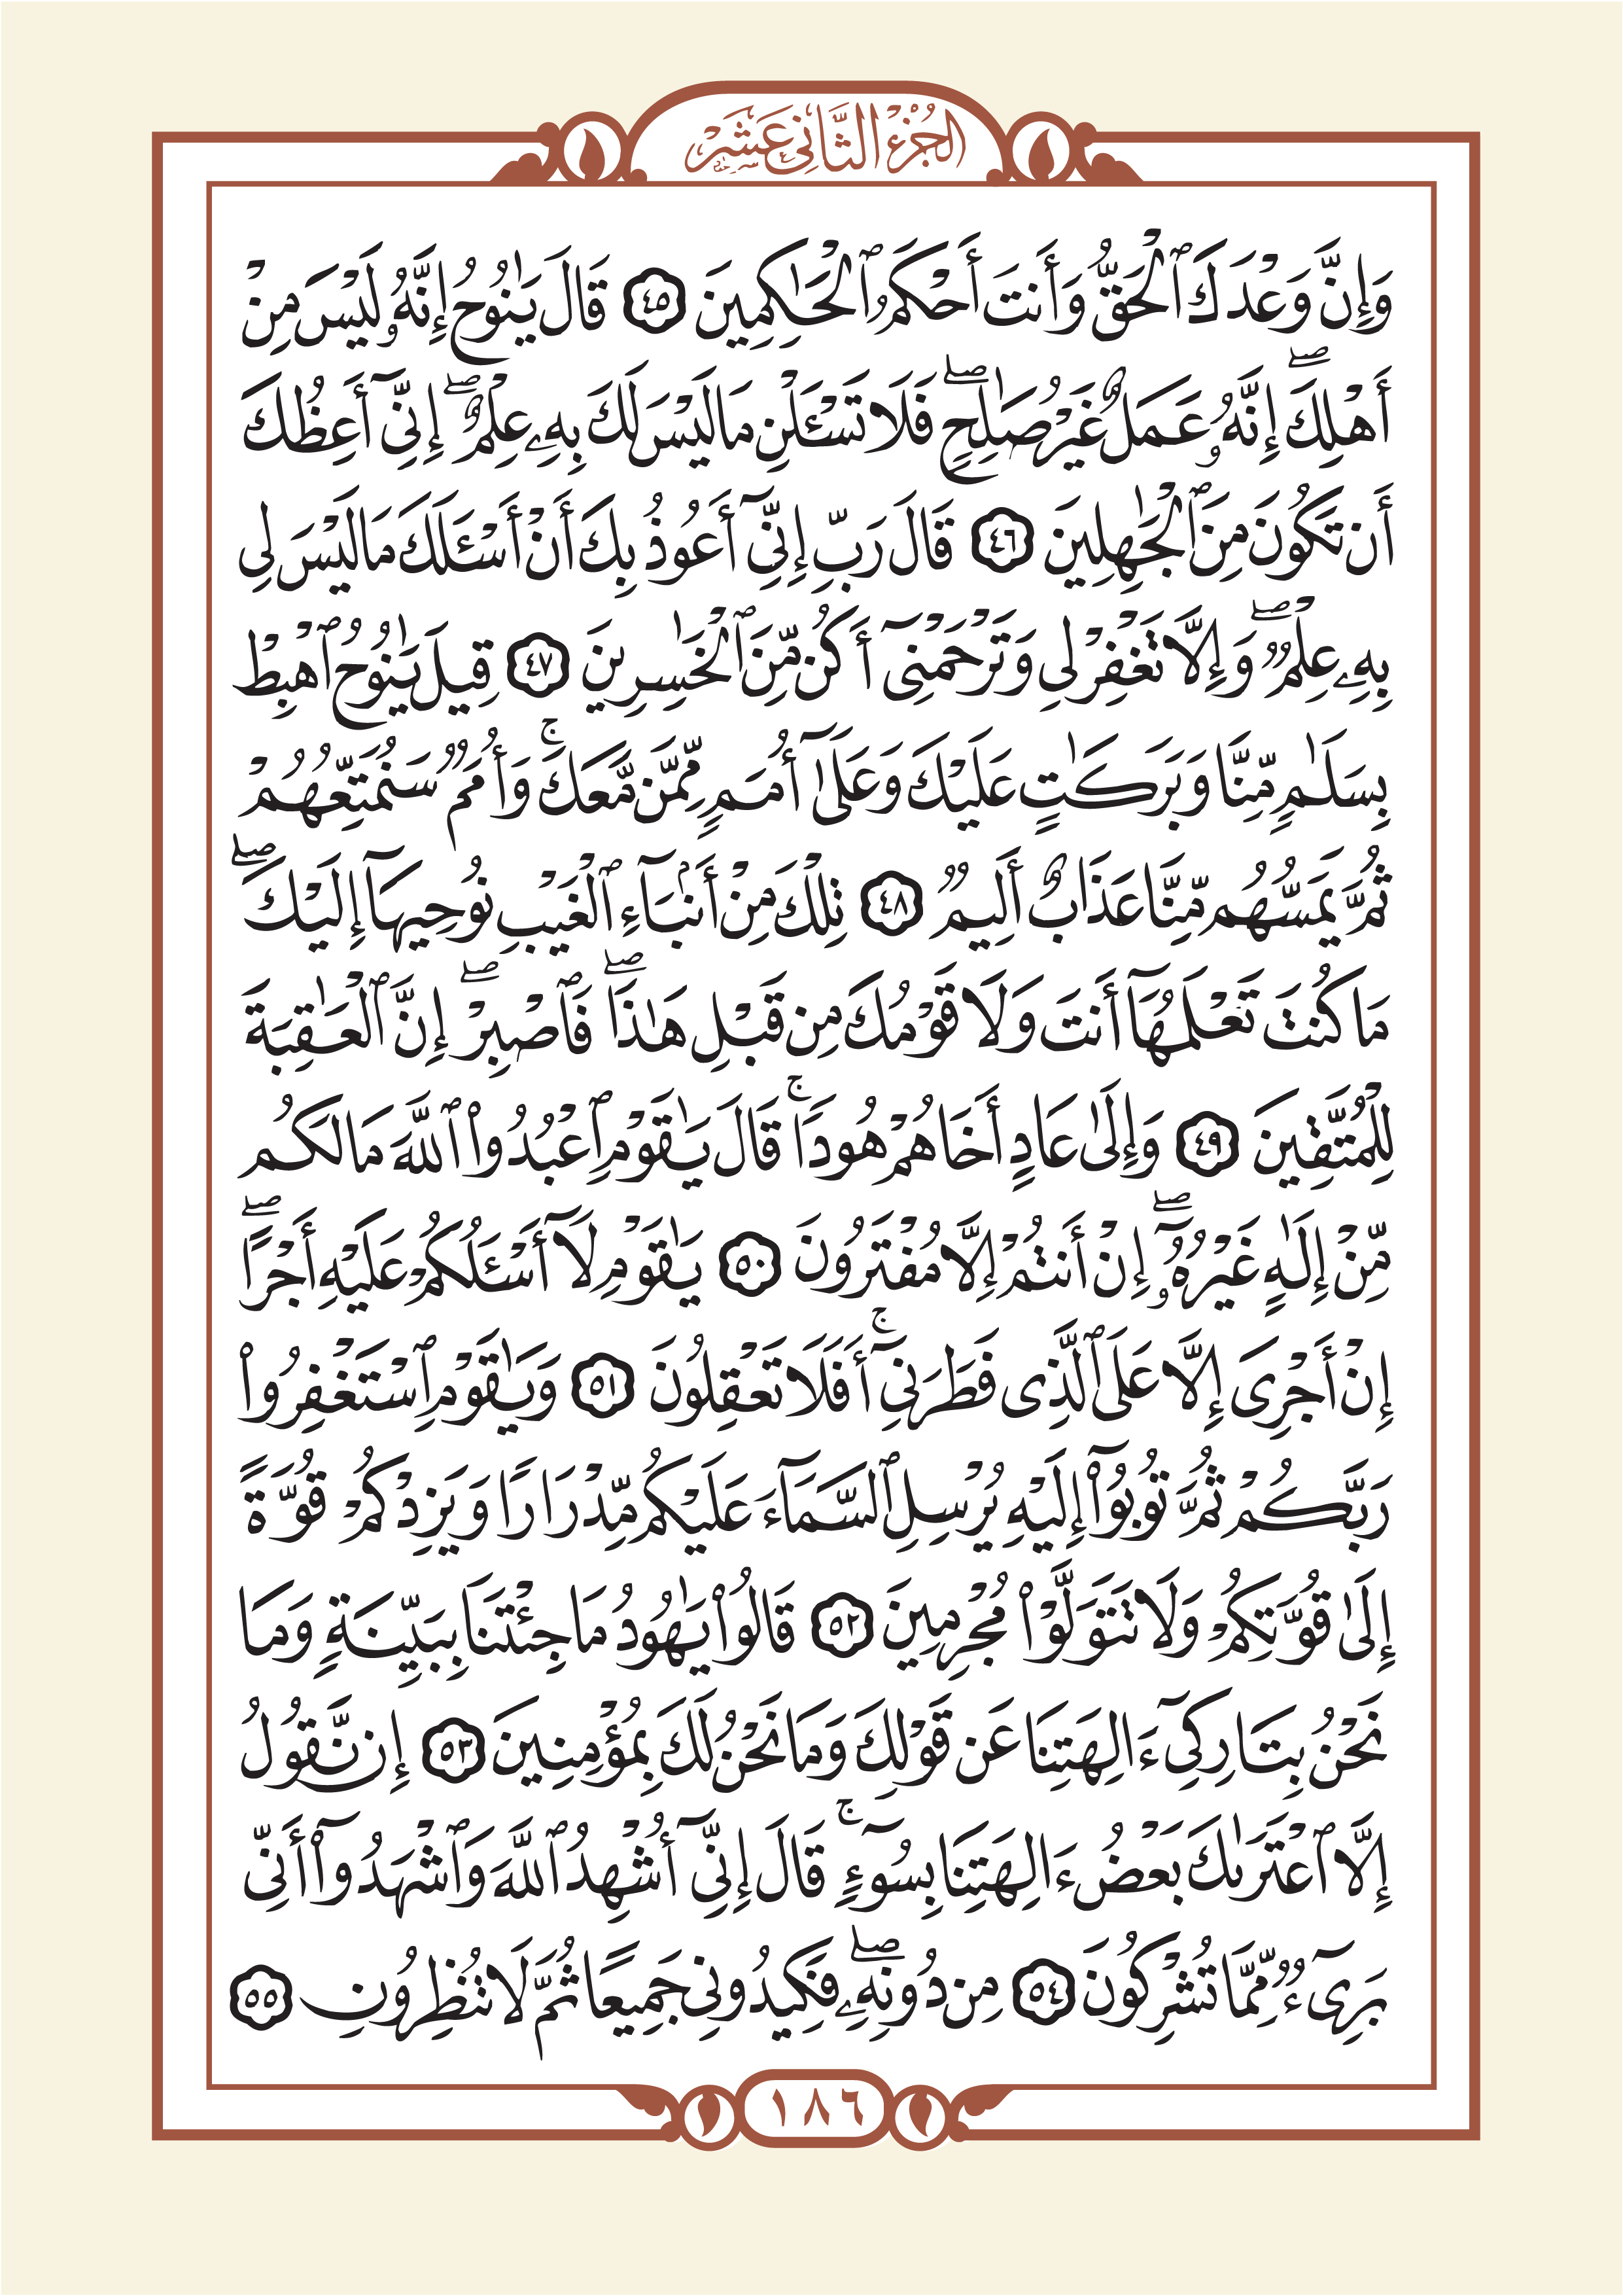 الجزء الثاني عشر
وَإِنَّ وَعْدَكَ ٱلْحَقُّ وَأَنتَ أَحْكَمُ ٱلْحَٰكِمِينَ ٤٥ قَالَ يَٰنُوحُ إِنَّهُۥ لَيْسَ مِنْ
أَهْلِكَۖ إِنَّهُۥ عَمَلٌ غَيْرُ صَٰلِحٖۖ فَلَا تَسْـَٔلْنِ مَا لَيْسَ لَكَ بِهِۦ عِلْمٌۖ إِنِّيٓ أَعِظُكَ
أَن تَكُونَ مِنَ ٱلْجَٰهِلِينَ ٤٦ قَالَ رَبِّ إِنِّيٓ أَعُوذُ بِكَ أَنْ أَسْـَٔلَكَ مَا لَيْسَ لِي
بِهِۦ عِلْمٞۖ وَإِلَّا تَغْفِرْ لِي وَتَرْحَمْنِيٓ أَكُن مِّنَ ٱلْخَٰسِرِينَ ٤٧ قِيلَ يَٰنُوحُ ٱهْبِطْ
بِسَلَٰمٖ مِّنَّا وَبَرَكَٰتٍ عَلَيْكَ وَعَلَىٰٓ أُمَمٖ مِّمَّن مَّعَكَۚ وَأُمَمٞ سَنُمَتِّعُهُمْ
ثُمَّ يَمَسُّهُم مِّنَّا عَذَابٌ أَلِيمٞ ٤٨ تِلْكَ مِنْ أَنۢبَآءِ ٱلْغَيْبِ نُوحِيهَآ إِلَيْكَۖ
مَا كُنتَ تَعْلَمُهَآ أَنتَ وَلَا قَوْمُكَ مِن قَبْلِ هَٰذَاۖ فَٱصْبِرْۖ إِنَّ ٱلْعَٰقِبَةَ
لِلْمُتَّقِينَ ٤٩ وَإِلَىٰ عَادٍ أَخَاهُمْ هُودٗاۚ قَالَ يَٰقَوْمِ ٱعْبُدُوا۟ ٱللَّهَ مَا لَكُم
مِّنْ إِلَٰهٍ غَيْرُهُۥٓۖ إِنْ أَنتُمْ إِلَّا مُفْتَرُونَ ٥٠ يَٰقَوْمِ لَآ أَسْـَٔلُكُمْ عَلَيْهِ أَجْرًاۖ
إِنْ أَجْرِىَ إِلَّا عَلَى ٱلَّذِى فَطَرَنِيٓۚ أَفَلَا تَعْقِلُونَ ٥١ وَيَٰقَوْمِ ٱسْتَغْفِرُوا۟
رَبَّكُمْ ثُمَّ تُوبُوٓا۟ إِلَيْهِ يُرْسِلِ ٱلسَّمَآءَ عَلَيْكُم مِّدْرَارٗا وَيَزِدْكُمْ قُوَّةً
إِلَىٰ قُوَّتِكُمْ وَلَا تَتَوَلَّوْا۟ مُجْرِمِينَ ٥٢ قَالُوا۟ يَٰهُودُ مَا جِئْتَنَا بِبَيِّنَةٖ وَمَا
نَحْنُ بِتَارِكِىٓ ءَالِهَتِنَا عَن قَوْلِكَ وَمَا نَحْنُ لَكَ بِمُؤْمِنِينَ ٥٣ إِن نَّقُولُ
إِلَّا ٱعْتَرَىٰكَ بَعْضُ ءَالِهَتِنَا بِسُوٓءٖۚ قَالَ إِنِّيٓ أُشْهِدُ ٱللَّهَ وَٱشْهَدُوٓا۟ أَنِّى
بَرِىٓءٞ مِّمَّا تُشْرِكُونَ ٥٤ مِن دُونِهِۦۖ فَكِيدُونِى جَمِيعٗا ثُمَّ لَا تُنظِرُونِ ٥٥
١٨٦